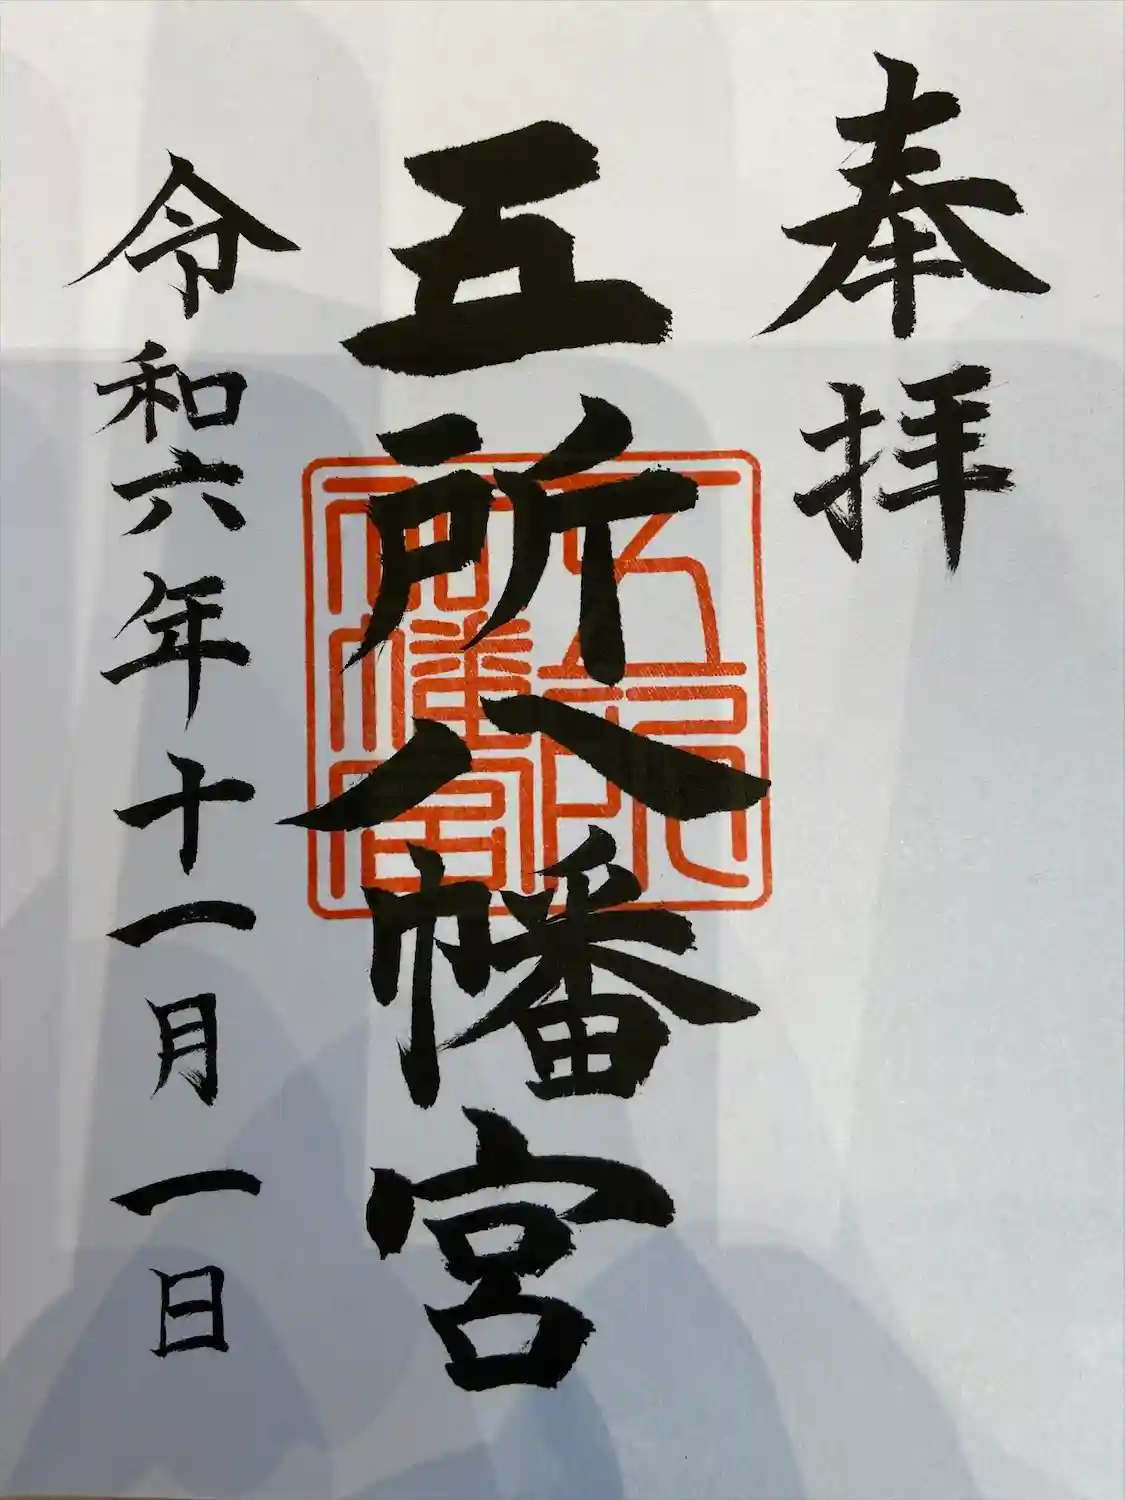 奉拝
五所八幡宮
令和六年十一月一日
五所八幡宮